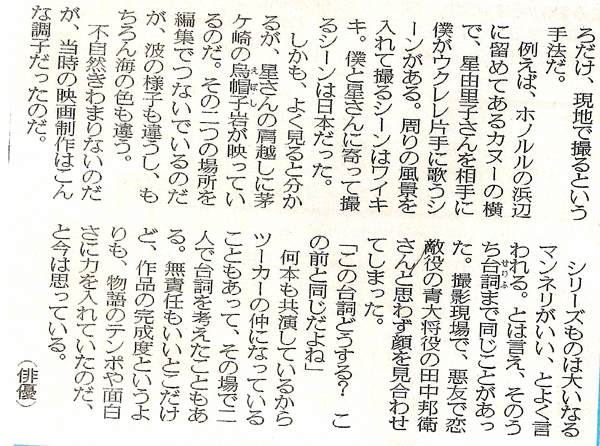 ろだけ、現地で撮るという
手法だ。
例えば、ホノルルの浜辺
に留めてあるカヌーの横
で、星由里子さんを相手に
僕がウクレレ片手に歌うシ
ーンがある。周りの風景を
入れて撮るシーンはワイキ
キ。僕と星さんに寄って撮
るシーンは日本だった。
しかも、よく見ると分か
るが、星さんの肩越しに茅
ケ崎の烏帽子岩が映ってい
るのだ。その二つの場所を
編集でつないでいるのだ
が、波の様子も違うし、も
ちろん海の色も違う。
不自然きわまりないのだ
が、当時の映画制作はこん
な調子だったのだ。
シリーズものは大いなる
マンネリがいい、とよく言
われる。とは言え、そのう
ち台詞まで同じことがあっ
た。撮影現場で、悪友で恋
敵役の青大将役の田中邦衛
さんと思わず顔を見合わせ
てしまった。
「この台詞どうする? こ
の前と同じだよね」
何本も共演しているから
ツーカーの仲になっている
こともあって、その場で二
人で台詞を考えたこともあ
る。無責任もいいとこだけ
ど、作品の完成度というよ
りも、物語のテンポや面白
さに力を入れていたのだ、
と今は思っている。
(俳優)